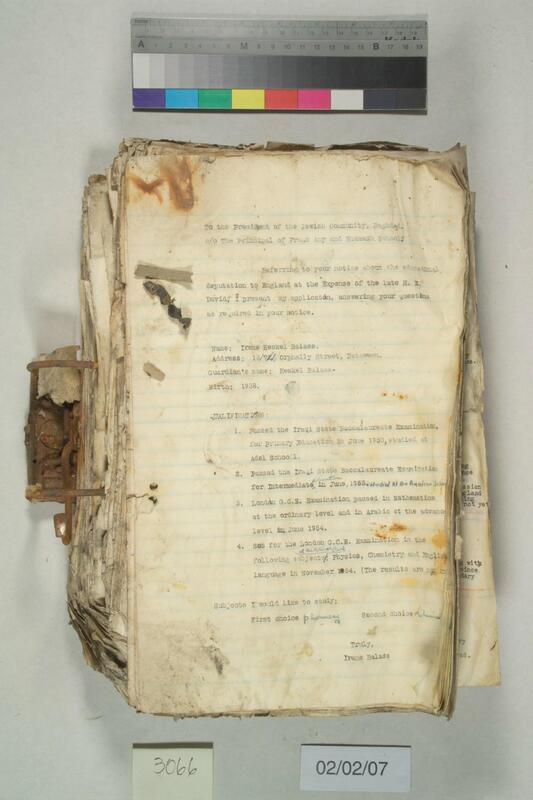 Kodak
A 1 2 3 4 5 6 M 8 9 10 11 12 13 14 15 B 17 18 19
To the President of the Jewish Community, Baghdad,
c/o The Principal of Frank Iny and Shamash School;
Referring to your notice about the educational
deputation to England at the Expense of the late H. E.
David, I present my application, answering your questions
as required in your notice.
Name: Irene Heskel Balass.
Address: Orphally Street, Bataween.
Guardian's name: Heskel Balass.
Birth: 1938.
QUALIFICATIONS:
1. Passed the Iraqi State Baccalaureate Examination,
for primary Education in June 1950, studied at
Adel School.
2. Passed the Iraqi State Baccalaureate Examination
for Intermediate in June, 1953.
3. London G.C.E. Examination passed in Mathematics
at the ordinary level and in Arabic at the advance
level in June 1954.
4. for the London G.C.E. Examination in the
following subjects, Physics, Chemistry and English
language in November 1954. (The results are
Subjects I would like to study;
First choice pharmacy Second choice
Truly,
Irene Balass
ssion
gland
ing
not yet
with
vince
dary
3066
02/02/07